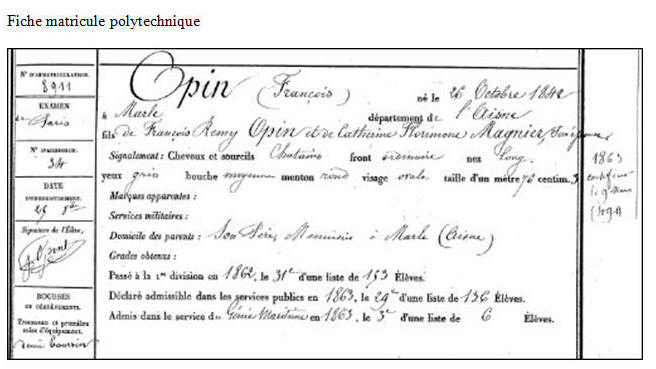 Fiche matricule polytechnique
N° D'IMMATRICULATION.
8911
EXAMEN
de Paris
34
DATE
Signature de l'Élève,
BOURSES
Trousseau et première
mise d'équipement.
demi boursier
Opin (François) né le 26 Octobre 1842
à Marle département de l'Aisne
fils de François Remy Opin et de Catherine Florimone Magnier, Son épouse
Signalement : Cheveux et sourcils Chatains front ordinaire nez long
yeux gris bouche moyenne menton rond visage ovale taille d'un mètre 76 centim. 3
Marques apparentes :
Services militaires :
Domicile des parents : Son Père, Menuisier à Marle (Aisne)
Grades obtenus :
Passé à la 1re division en 1862, le 31e d'une liste de 153 Élèves.
Déclaré admissible dans les services publics en 1863, le 29e d'une liste de 136 Élèves.
Admis dans le service du Génie Maritime en 1863, le 3e d'une liste de 6 Élèves.
1863